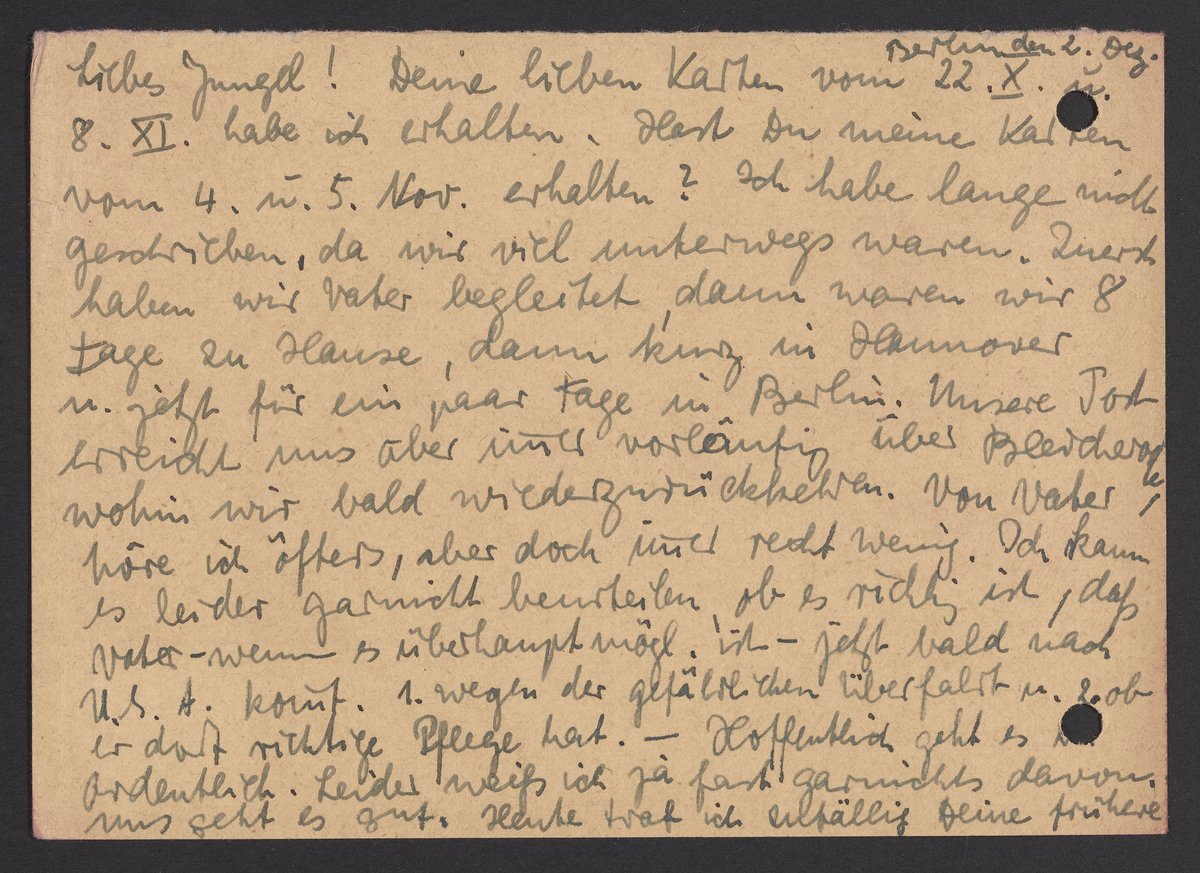 Berlin den 2. Dez.
Liebes Jungel! Deine lieben Karten vom 22. X. u.
8. XI. habe ich erhalten. Hast Du meine Karten
vom 4. u. 5. Nov. erhalten? Ich habe lange nicht
geschrieben, da wir viel unterwegs waren. Zuerst
haben wir Vater begleitet, dann waren wir 8
Tage zu Hause, dann kurz in Hannover
u. jetzt für ein paar Tage in Berlin. Unsere Post
erreicht uns aber immer vorläufig über Bleicherode,
wohin wir bald wiederzurückkehren. Von Vater
höre ich öfters, aber doch immer recht wenig. Ich kann
es leider garnicht beurteilen, ob es richtig ist, daß
Vater – wenn es überhaupt mögl. ist – jetzt bald nach
U.S.A. kommt. 1. wegen der gefährlichen Überfahrt u. 2. ob
er dort richtige Pflege hat. – Hoffentlich geht es
ordentlich. Leider weiß ich ja fast garnichts davon.
Uns geht es gut. Heute traf ich zufällig Deine frühere